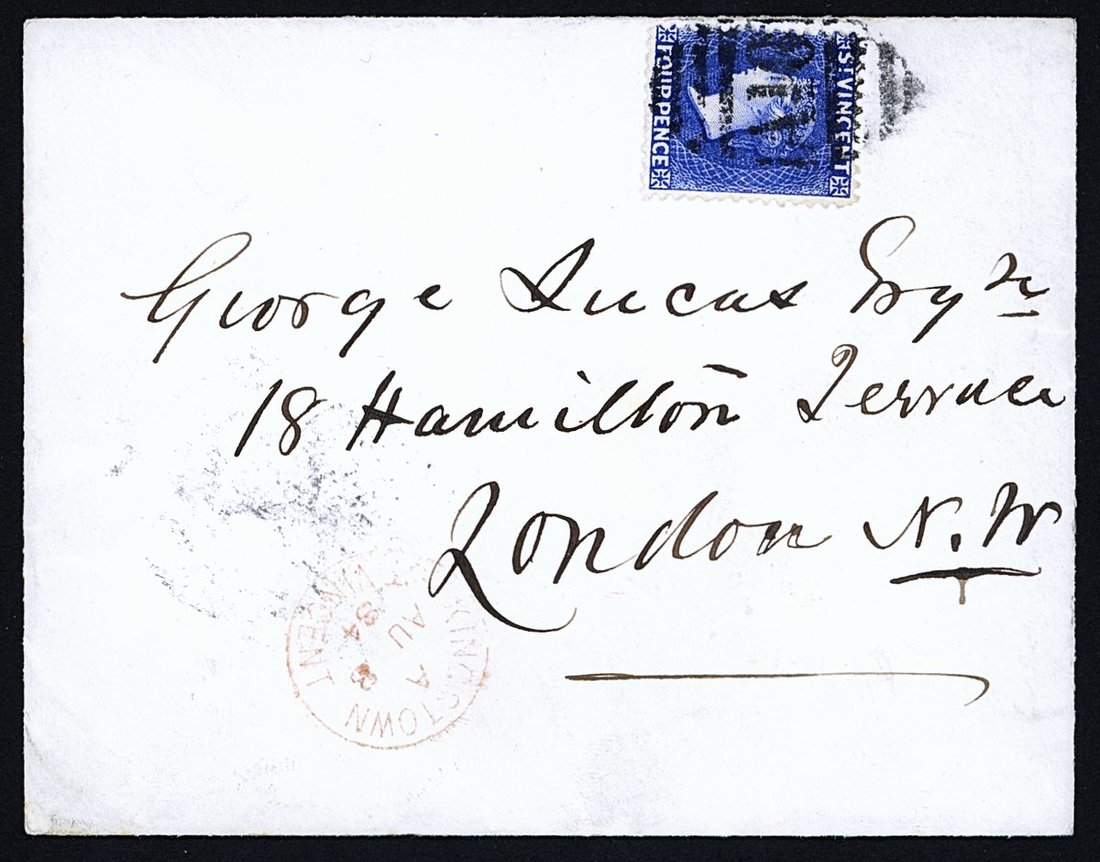 ST VINCENT
FOUR PENCE
A10
George Lucas Esqre
18 Hamilton Terrace
London N.W
KINGSTOWN
ST VINCENT
A
AU 8
84